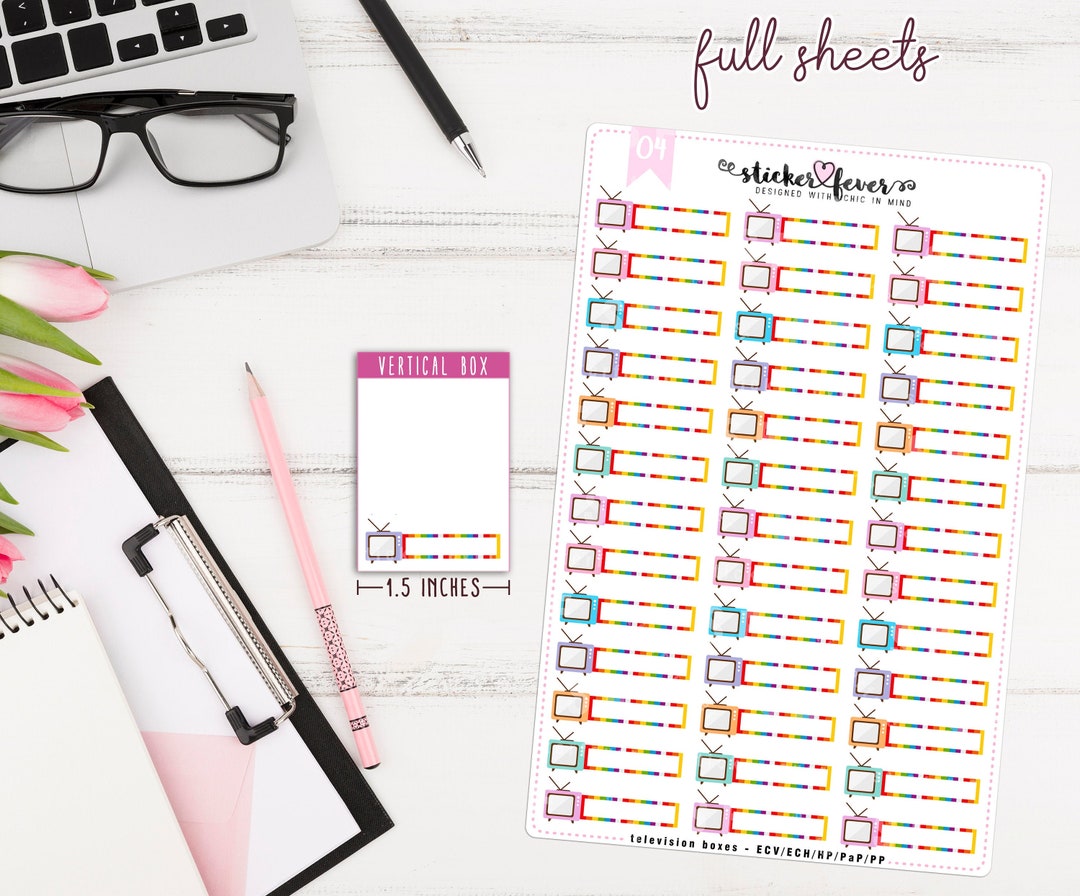 full sheets
04
sticker fever
DESIGNED WITH CHIC IN MIND
VERTICAL BOX
1.5 INCHES
television boxes - ECV/ECH/HP/PaP/PP